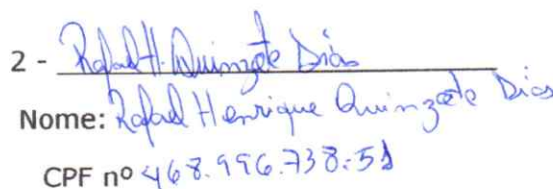 2 - Rafael H. Quinzote Dias
Nome: Rafael Henrique Quinzote Dias
CPF nº 468.996.738-51